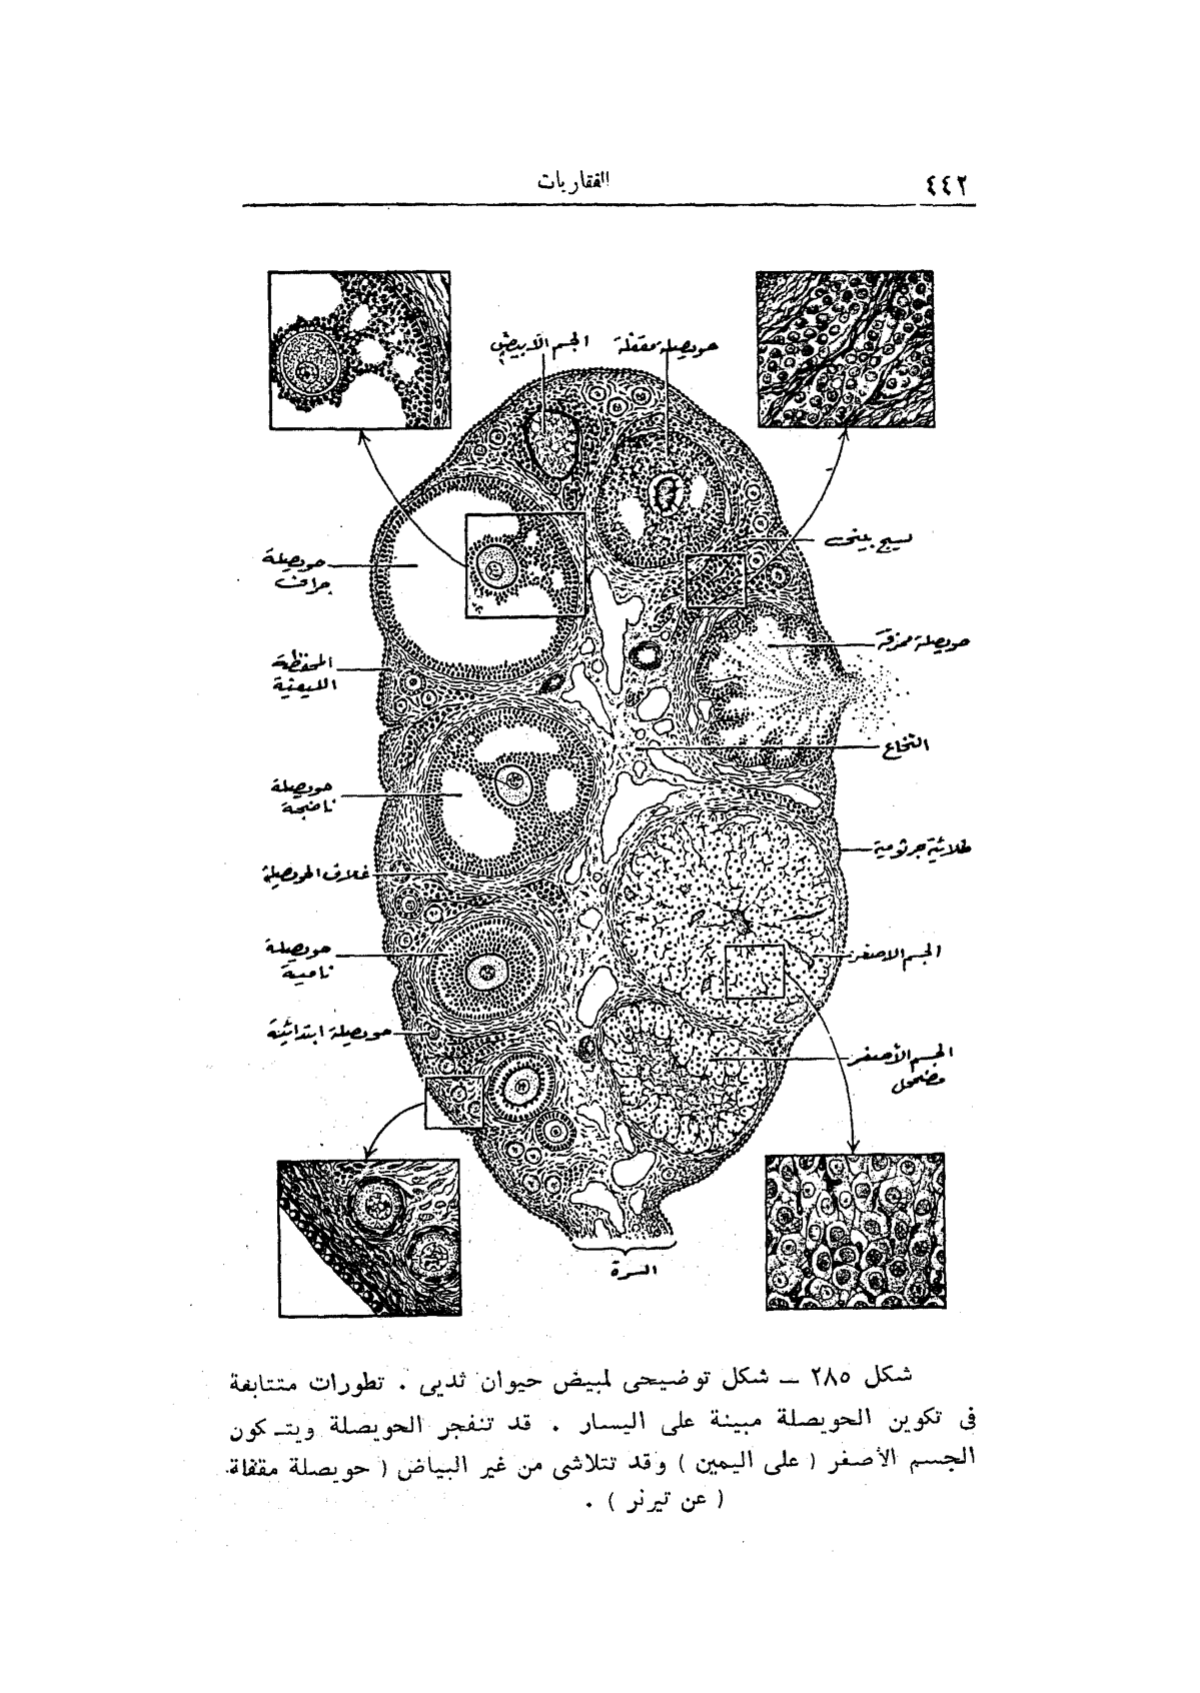 ٤٤٢
الفقاريات
الجسم الأبيض
حويصلة مقفلة
نسيج بينى
حويصلة
جراف
حويصلة ممزقة
المحفظة
الليفية
النخاع
حويصلة
ناضجة
طلائية جرثومية
غلاف الحويصلة
حويصلة
نامية
الجسم الاصفر
حويصلة ابتدائية
الجسم الأصفر
مضمحل
السرة
شكل ٢٨٥ ــ شكل توضيحى لمبيض حيوان ثديى . تطورات متتابعة
فى تكوين الحويصلة مبينة على اليسار . قد تنفجر الحويصلة ويتـكون
الجسم الأصفر ( على اليمين ) وقد تتلاشى من غير البياض ( حويصلة مقفلة .
( عن تيرنر ) .